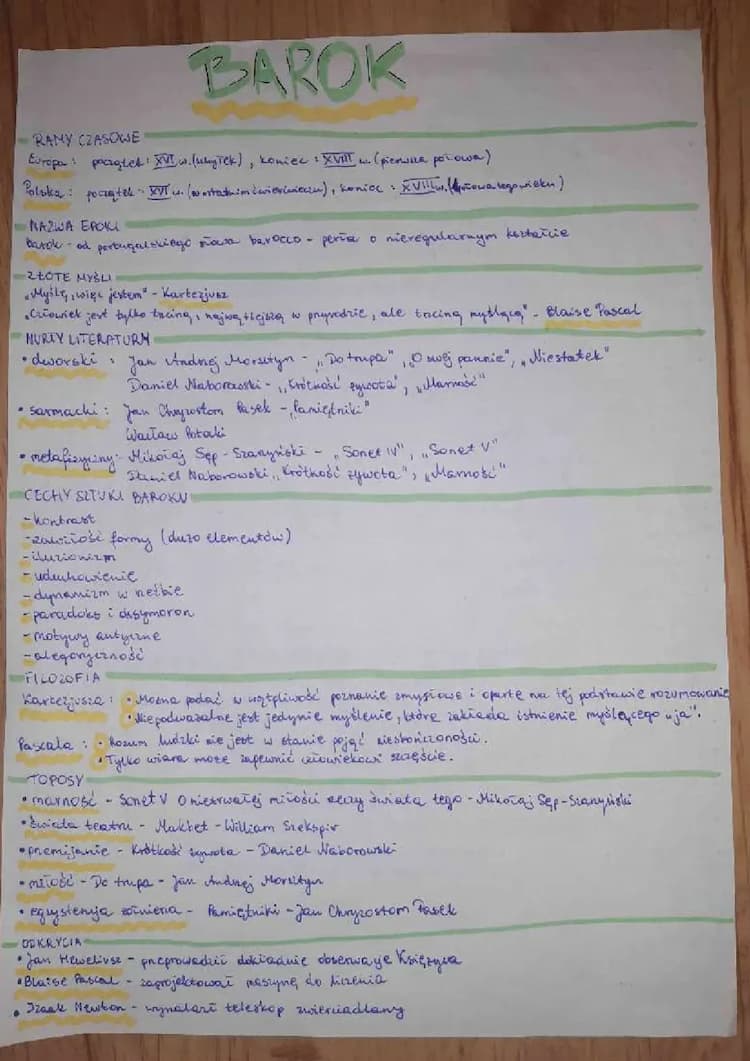 BAROK
RAMY CZASOWE
Europa: początek: XVI w. (schyłek), koniec: XVIII w. (pierwsza połowa)
Polska: początek: XVI w. (w ostatnim ćwierćwieczu), koniec: XVIII w. (połowa tego wieku)
NAZWA EPOKI
Barok - od portugalskiego słowa barocco - perła o nieregularnym kształcie
ZŁOTE MYŚLI
"Myślę, więc jestem" - Kartezjusz
"Człowiek jest tylko trzciną, najwątlejszą w przyrodzie, ale trzciną myślącą" - Blaise Pascal
NURTY LITERATURY
• dworski: Jan Andrzej Morsztyn - "Do trupa", "O swej pannie", "Niestatek"
Daniel Naborowski - "Krótkość żywota", "Marność"
• sarmacki: Jan Chryzostom Pasek - "Pamiętniki"
Wacław Potocki
• metafizyczny: Mikołaj Sęp-Szarzyński - "Sonet IV", "Sonet V"
Daniel Naborowski "Krótkość żywota", "Marność"
CECHY SZTUKI BAROKU
- kontrast
- zawiłość formy (dużo elementów)
- iluzjonizm
- uduchowienie
- dynamizm w rzeźbie
- paradoks i oksymoron
- motywy antyczne
- alegoryczność
FILOZOFIA
Kartezjusza: • Można podać w wątpliwość poznanie zmysłowe i oparte na tej podstawie rozumowanie
• Niepodważalne jest jedynie myślenie, które zakłada istnienie myślącego "ja".
Pascala: • Rozum ludzki nie jest w stanie pojąć nieskończoności.
• Tylko wiara może zapewnić człowiekowi szczęście.
TOPOSY
• marność - Sonet V O nietrwałej miłości rzeczy świata tego - Mikołaj Sęp-Szarzyński
• świata teatru - Makbet - William Szekspir
• przemijanie - Krótkość żywota - Daniel Naborowski
• miłość - Do trupa - Jan Andrzej Morsztyn
• egzystencja żołnierza - Pamiętniki - Jan Chryzostom Pasek
ODKRYCIA
• Jan Heweliusz - przeprowadził dokładnie obserwacje Księżyca
• Blaise Pascal - zaprojektował maszynę do liczenia
• Izaak Newton - wynalazł teleskop zwierciadlany